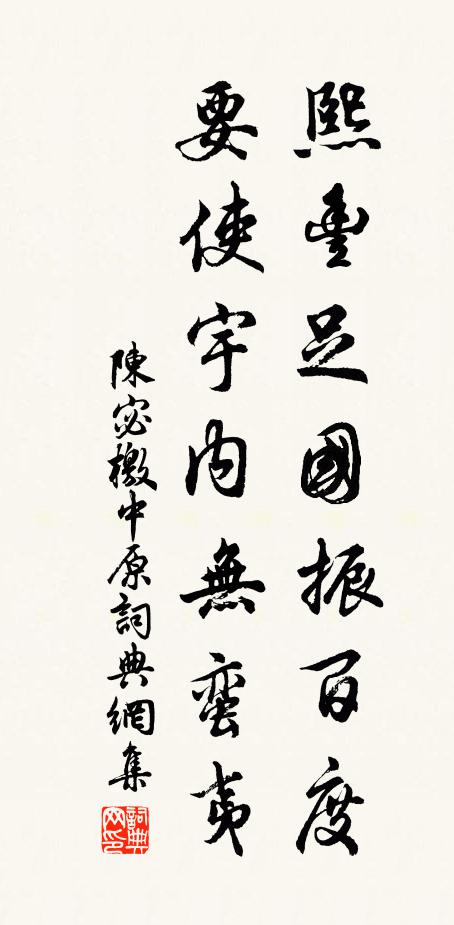 熙豐足國振百度
要使宇内無蛮夷
陳宓檄中原詞典網集
詞典网印